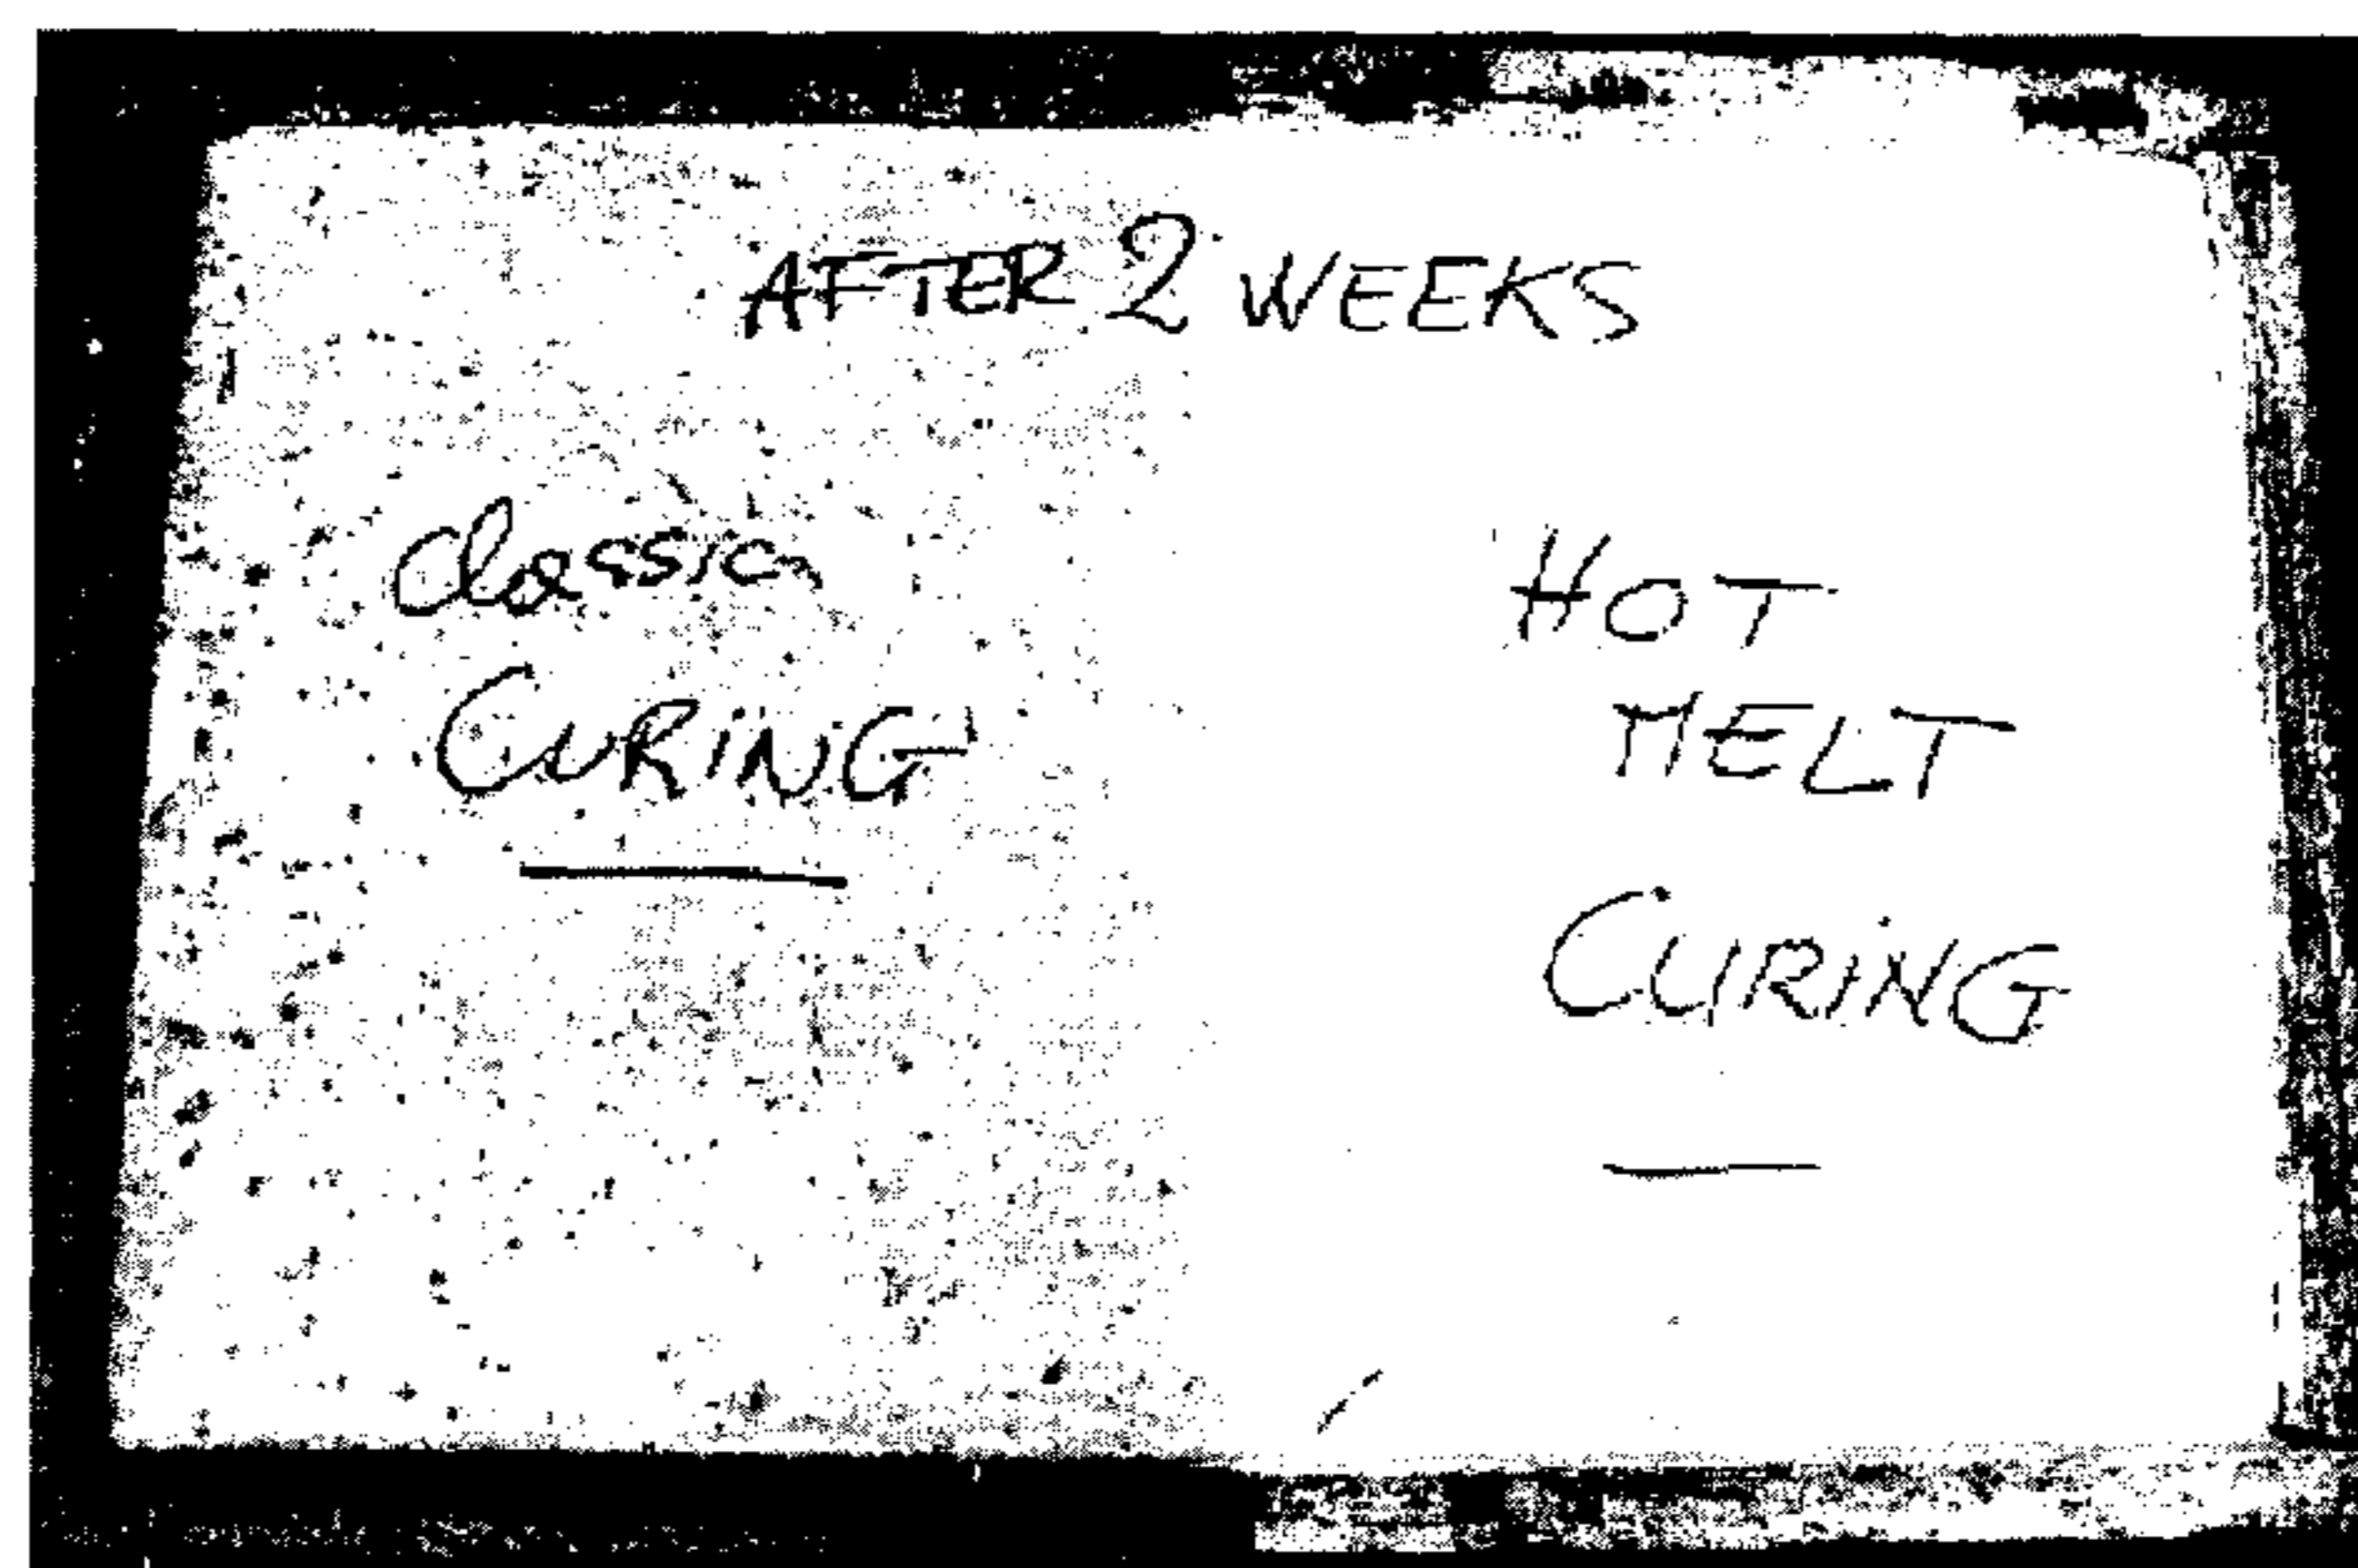 AFTER 2 WEEKS
Classic
CURiNG
HOT
MELT
CURiNG